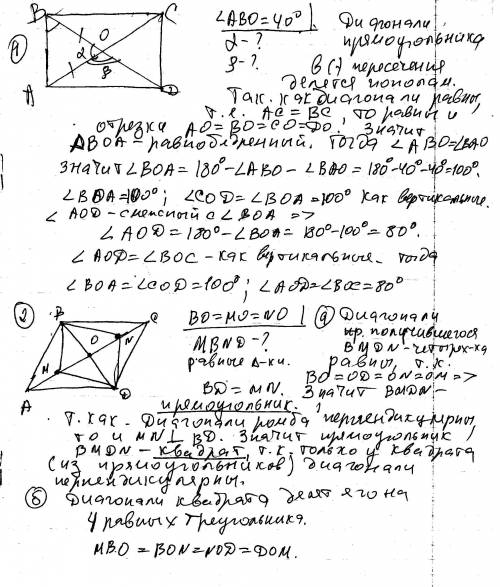 ① B C ∠ABO=40° Диагонали
α-? прямоугольника
β-? в (·) пересечения
делятся пополам.
A D Так как диагонали равны,
т.е. AC=BC, то равны и
отрезки AO=BO=CO=DO. Значит
ΔBOA - равнобедренный. Тогда ∠ABO=∠BAO
Значит ∠BOA=180°-∠ABO-∠BAO=180°-40°-40°=100°.
∠BOA=100°; ∠COD=∠BOA=100° как вертикальные.
∠AOD-смежный с ∠BOA =>
∠AOD=180°-∠BOA=180°-100°=80°.
∠AOD=∠BOC-как вертикальные. Тогда
∠BOA=∠COD=100°; ∠AOD=∠BOC=80°
② B C BO=MO=NO ⓐ Диагонали
O N MBND-? пр. получившегося
M равные Δ-ки. BMDN-четырех-ка
A D равны, т.к.
BO=OD=ON=OM=>
BD=MN. Значит BMDN-
прямоугольник.
Т.как. Диагонали ромба перпендикулярны,
то и MN⊥BD. Значит прямоугольник
BMDN-квадрат, т.к. только у квадрата
(из прямоугольников) диагонали
перпендикулярны.
ⓑ Диагонали квадрата делят его на
4 равных треугольника.
MBO=BON=NOD=DOM.